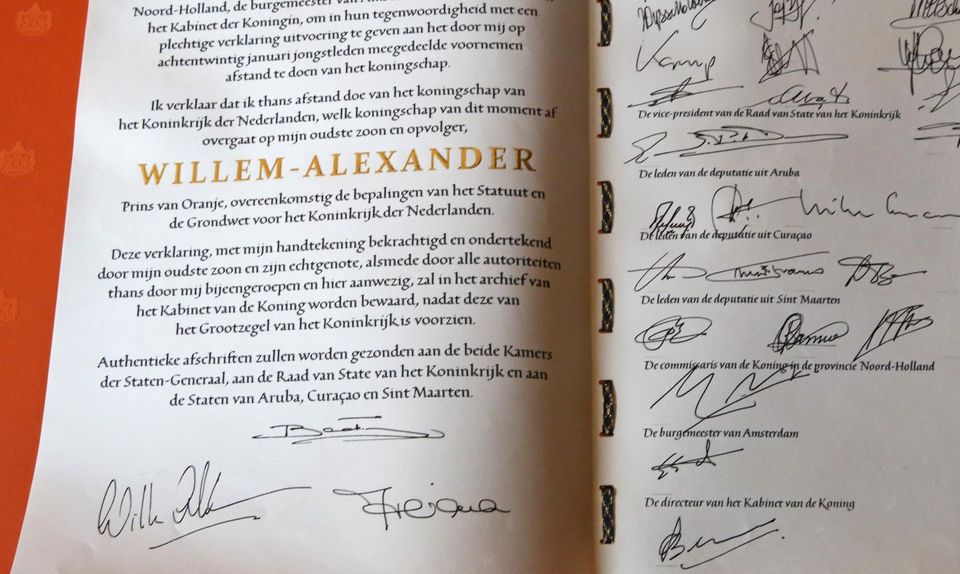 Noord-Holland, de burgemeester van
het Kabinet der Koningin, om in hun tegenwoordigheid met een
plechtige verklaring uitvoering te geven aan het door mij op
achtentwintig januari jongstleden meegedeelde voornemen
afstand te doen van het koningschap.
Ik verklaar dat ik thans afstand doe van het koningschap van
het Koninkrijk der Nederlanden, welk koningschap van dit moment af
overgaat op mijn oudste zoon en opvolger,
WILLEM-ALEXANDER
Prins van Oranje, overeenkomstig de bepalingen van het Statuut en
de Grondwet voor het Koninkrijk der Nederlanden.
Deze verklaring, met mijn handtekening bekrachtigd en ondertekend
door mijn oudste zoon en zijn echtgenote, alsmede door alle autoriteiten
thans door mij bijeengeroepen en hier aanwezig, zal in het archief van
het Kabinet van de Koning worden bewaard, nadat deze van
het Grootzegel van het Koninkrijk is voorzien.
Authentieke afschriften zullen worden gezonden aan de beide Kamers
der Staten-Generaal, aan de Raad van State van het Koninkrijk en aan
de Staten van Aruba, Curaçao en Sint Maarten.
Kamp
De vice-president van de Raad van State van het Koninkrijk
De leden van de deputatie uit Aruba
De leden van de deputatie uit Curaçao
De leden van de deputatie uit Sint Maarten
De commissaris van de Koning in de provincie Noord-Holland
De burgemeester van Amsterdam
De directeur van het Kabinet van de Koning